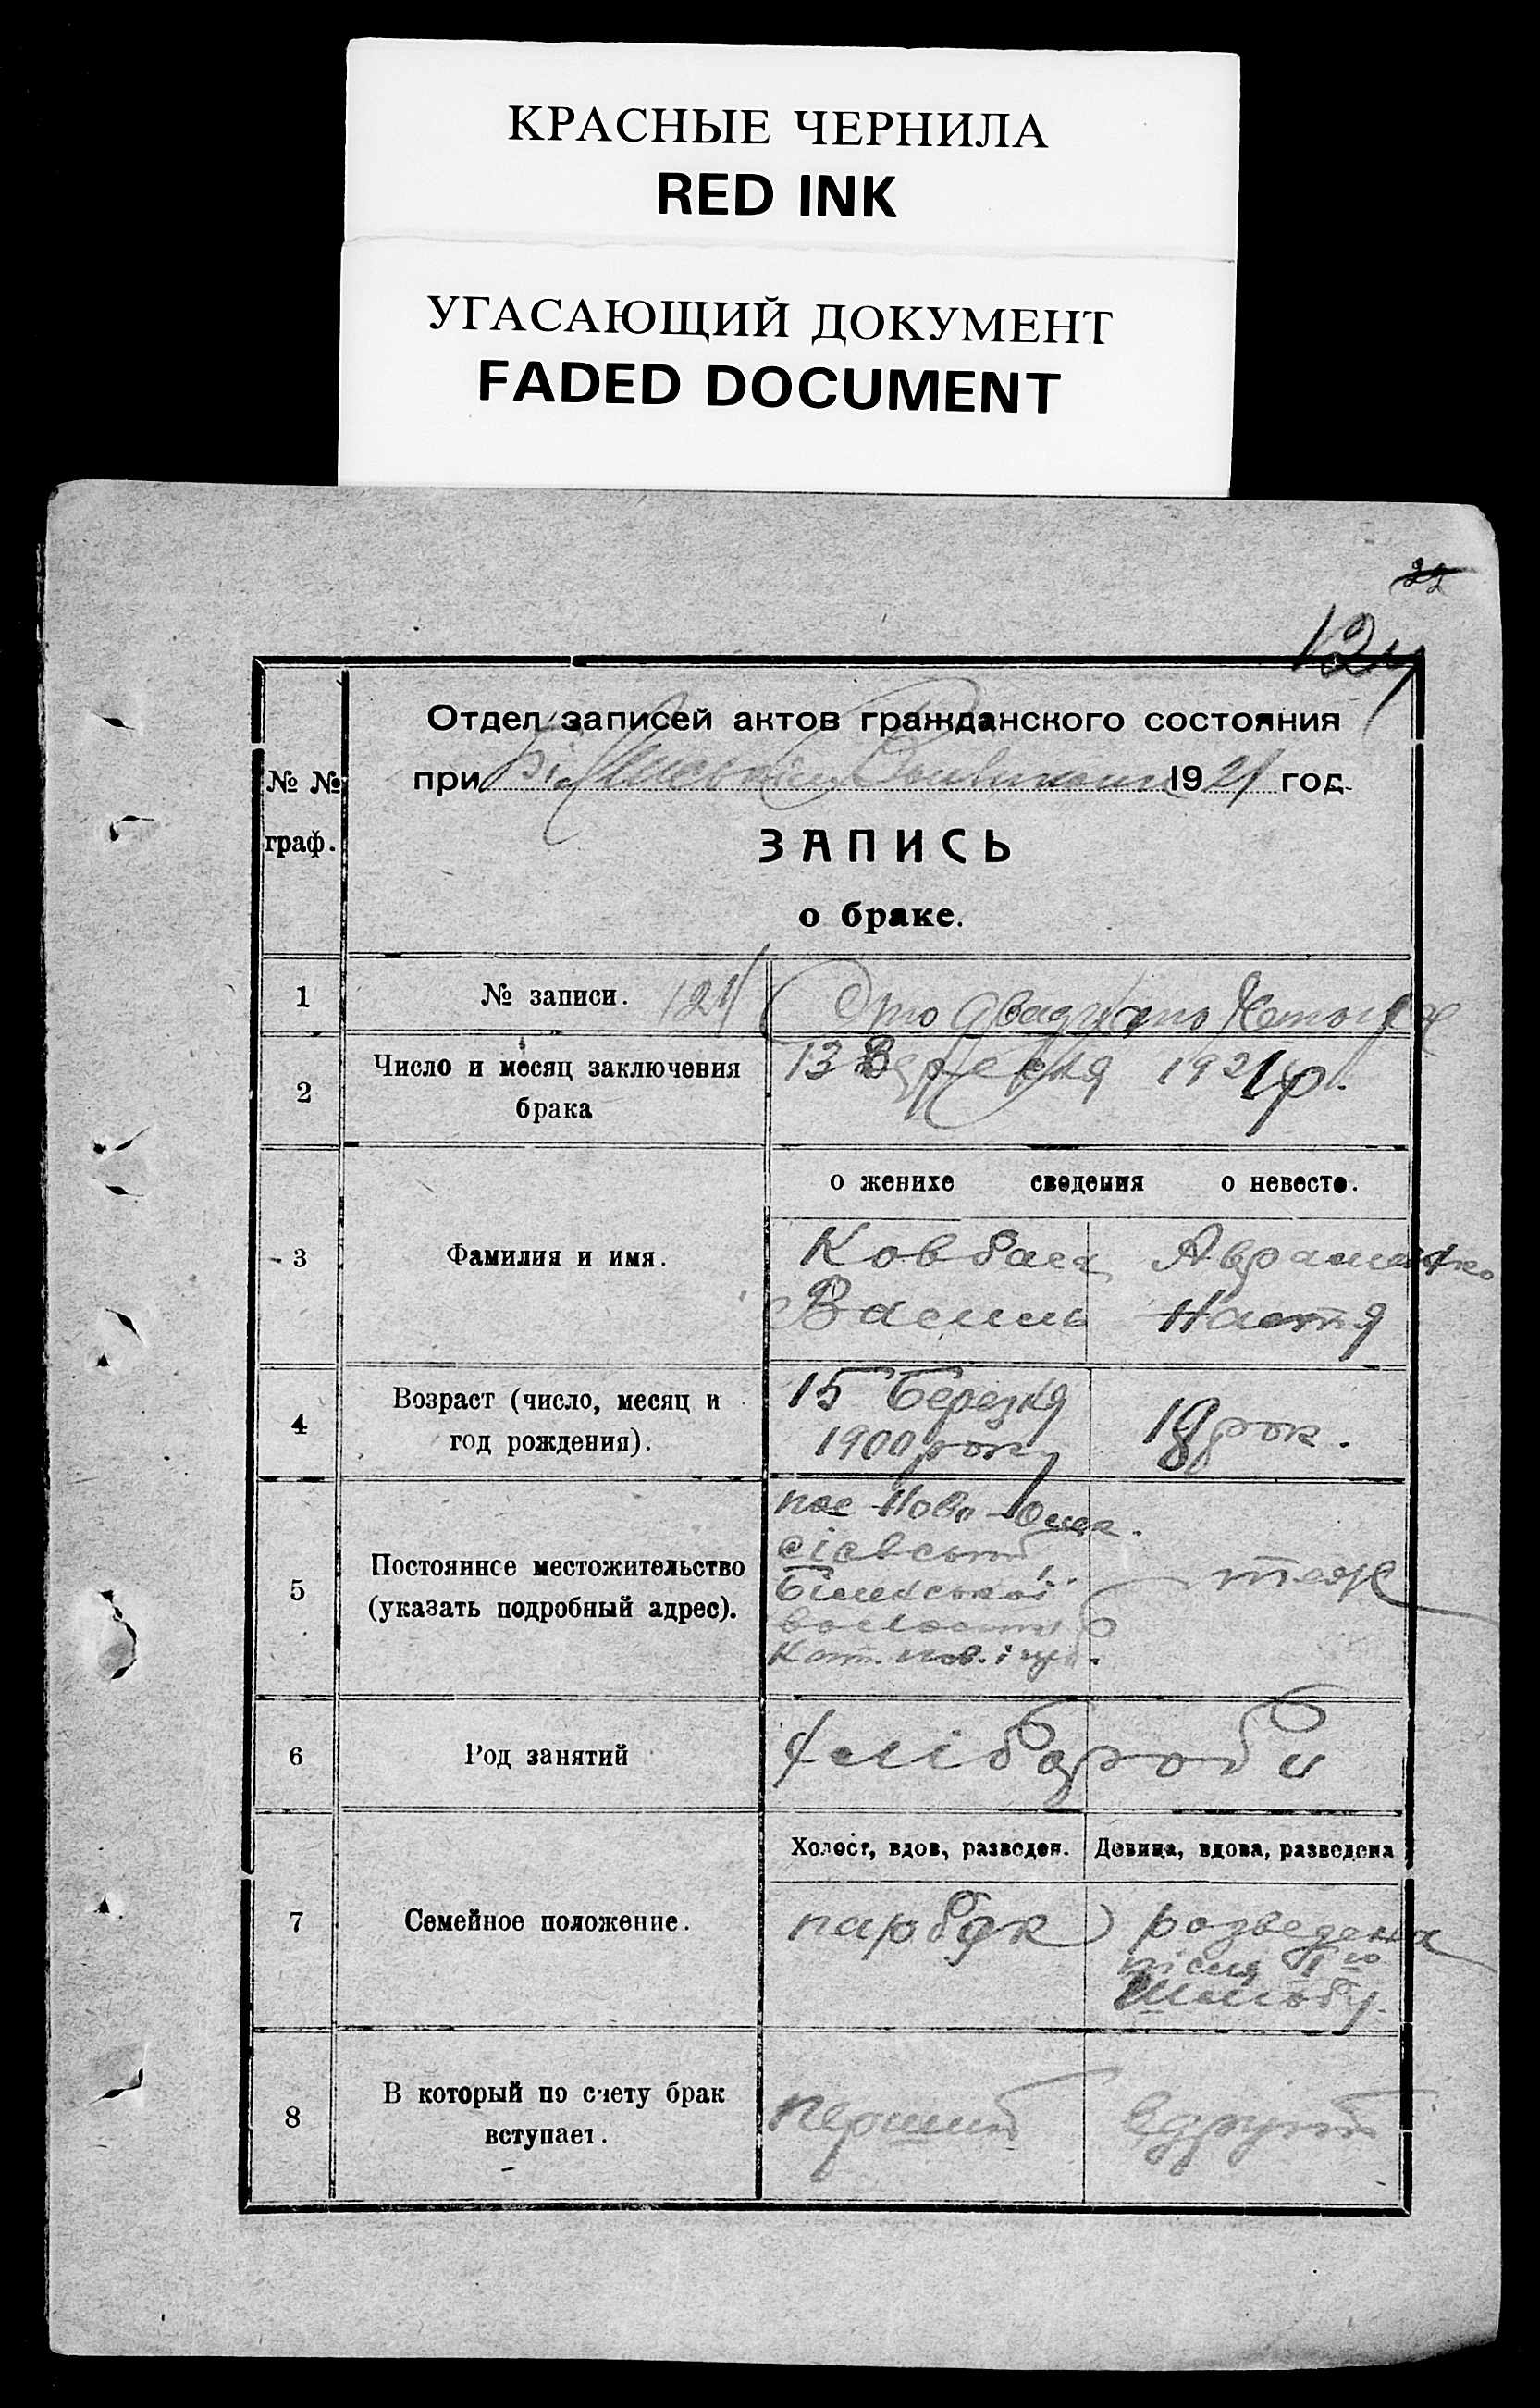 КРАСНЫЕ ЧЕРНИЛА
RED INK
УГАСАЮЩИЙ ДОКУМЕНТ
FADED DOCUMENT
22
124
Отдел записей актов гражданского состояния
№ №
граф.
при 1921 год.
ЗАПИСЬ
о браке.
1
№ записи.
124
Сто двадцать
2
Число и месяц заключения
брака
13 Вересня 1921 р.
о женихе сведения о невесте.
3
Фамилия и имя.
Ковбаса Авраменко
Василь Настя
4
Возраст (число, месяц и
год рождения).
15 Березня
1900 року
18 рок.
5
Постоянное местожительство
(указать подробный адрес).
пос Ново-Олек
сіевський
волости
Кот. пов. і губ.
теж
6
Род занятий
хлібороби
Холост, вдов, разведен. Девица, вдова, разведена
7
Семейное положение.
парубок
розведена
після 1го
шлюбу.
8
В который по счету брак
вступает.
перший
вдругий